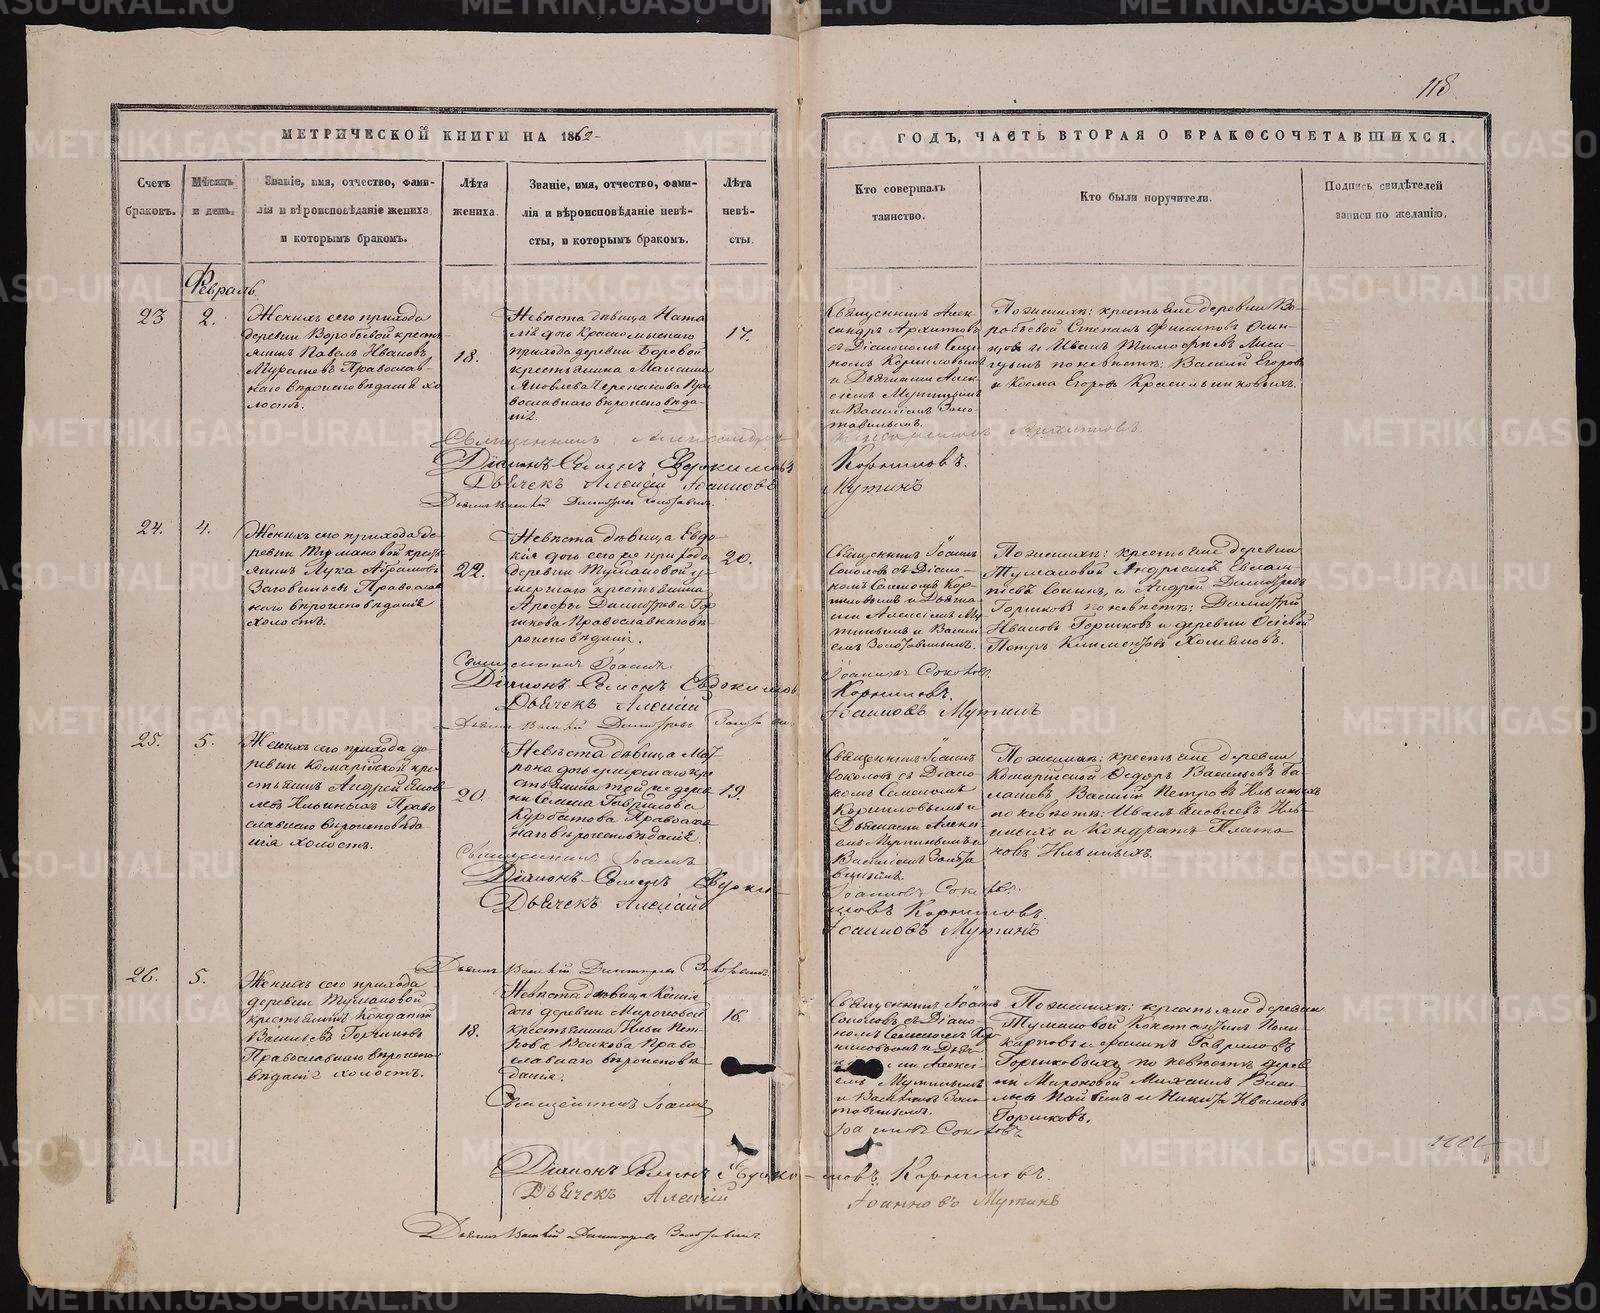 118
МЕТРИЧЕСКОЙ КНИГИ НА 1862
ГОДЪ, ЧАСТЬ ВТОРАЯ О БРАКОСОЧЕТАВШИХСЯ.
Счетъ браковъ.
Мѣсяцъ и день.
Званіе, имя, отчество, фами-
лія и вѣроисповѣданіе жениха,
и которымъ бракомъ.
Лѣта
жениха.
Званіе, имя, отчество, фами-
лія и вѣроисповѣданіе невѣ-
сты, и которымъ бракомъ.
Лѣта
невѣ-
сты.
Кто совершалъ
таинство.
Кто были поручители.
Подпись свидѣтелей
записи по желанію.
Февраль
23
2.
Женихъ сего прихода
деревни Воробьевой кресть-
янинъ Павелъ Ивановъ
Православ-
наго вѣроисповѣданія хо-
лостъ.
18.
Невѣста дѣвица Ната
лія дочь Красномысскаго
прихода деревни Боровой
крестьянина Максима
Яковлева Черепанова Пра
вославнаго вѣроисповѣда-
нія.
17.
Священникъ Алек-
сандръ Архиповъ
съ Діакономъ Семе
номъ Корниловымъ
и Дьячками Алек-
сіемъ Мутинымъ
и Василіемъ Золо-
тавинымъ.
По женихѣ: крестьяне деревни Во-
робьевой Степанъ Филиповъ
и Иванъ Тимофеевъ
по невѣстѣ: Василій Егоровъ
и Косма Егоровъ Красильниковыхъ.
Священникъ Александръ
Архиповъ.
Діаконъ Семенъ Евдокимовъ
Корниловъ.
Дьячекъ Алексій Іоанновъ
Мутинъ
Дьячекъ Василій Димитріевъ Золотавинъ.
24.
4.
Женихъ сего прихода де-
ревни Тумановой кресть-
янинъ Лука Абрамовъ
Православ
наго вѣроисповѣданія
холостъ.
22.
Невѣста дѣвица Евдо
кія дочь сего же прихода
деревни Тумановой у-
мершаго крестьянина
Арефы Димитріева Гор
шкова Православнаго вѣ-
роисповѣданія.
20.
Священникъ Іоаннъ
Соколовъ съ Діако-
номъ Семеномъ Кор-
ниловымъ и Дьячка-
ми Алексіемъ Му
тинымъ и Васили-
емъ Золотавинымъ.
По женихѣ: крестьяне деревни
Тумановой Андреянъ Евлам-
піевъ и Андрей Димитріевъ
Горшковъ по невѣстѣ: Димитрій
Ивановъ Горшковъ и деревни
Петръ Климентовъ
Священникъ Іоаннъ
Іоанновъ Соколовъ.
Діаконъ Семенъ Евдокимовъ
Корниловъ.
Дьячекъ Алексій
Іоанновъ Мутинъ
Дьячекъ Василій Димитріевъ
25.
5.
Женихъ сего прихода де-
ревни Комарійской кре-
стьянинъ Андрей
Ильиныхъ Право
славнаго вѣроисповѣда
нія холостъ.
20.
Невѣста дѣвица Мат
рона дочь умершаго кре
стьянина той же дерев
ни Семена Гаврилова
Курбатова Православ
наго вѣроисповѣданія
19.
Священникъ Іоаннъ
Соколовъ съ Діако-
номъ Семеномъ
Корниловымъ и
Дьячками Алексі-
емъ Мутинымъ и
Василіемъ Золота
винымъ.
По женихѣ: крестьяне деревни
Комарійской Федоръ Васильевъ Ба-
лашевъ Василій Петровъ Ильиныхъ
по невѣстѣ: Иванъ Яковлевъ Иль-
иныхъ и Кондратъ Плато
новъ Ильиныхъ.
Священникъ Іоаннъ
Іоанновъ Соколовъ.
Діаконъ Семенъ Евдоки-
мовъ Корниловъ.
Дьячекъ Алексій
Іоанновъ Мутинъ
Дьячекъ Василій Димитріевъ Золотавинъ.
26.
5.
Женихъ сего прихода
деревни Тумановой
крестьянинъ
Васильевъ Горшковъ
Православнаго вѣроиспо
вѣданія холостъ.
18.
Невѣста дѣвица Ксенія
дочь деревни Мироновой
крестьянина Ильи Пет-
рова Волкова Право
славнаго вѣроисповѣ
данія.
16.
Священникъ Іоаннъ
Соколовъ съ Діако-
номъ Семеномъ Кор
ниловымъ и
Алексі-
емъ Мутинымъ
и Василіемъ Золо-
тавинымъ.
По женихѣ: крестьяне деревни
Тумановой Константинъ Поли
карповъ и Филипъ Гавриловъ
Горшковыхъ, по невѣстѣ дерев
ни Мироновой Михаилъ
и Никита Ивановъ
Горшковъ.
Священникъ Іоаннъ
Іоанновъ Соколовъ
Діаконъ Семенъ Евдоки-
мовъ Корниловъ.
Дьячекъ Алексій
Іоанновъ Мутинъ
Дьячекъ Василій Димитріевъ Золотавинъ.
METRIKI.GASO-URAL.RU